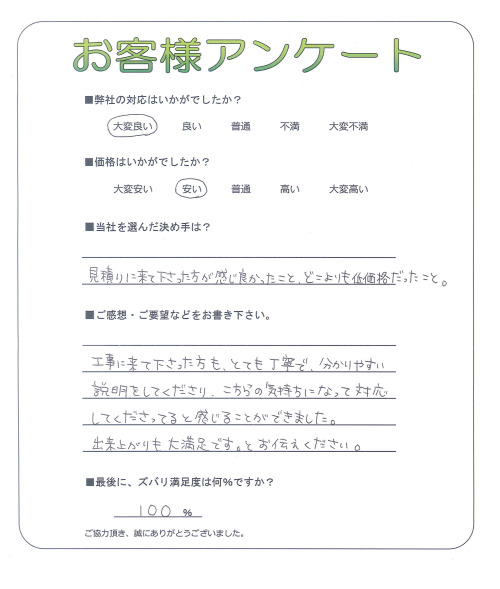 お客様アンケート
■弊社の対応はいかがでしたか？
大変良い 良い 普通 不満 大変不満
■価格はいかがでしたか？
大変安い 安い 普通 高い 大変高い
■当社を選んだ決め手は？
見積りに来て下さった方が感じ良かったこと、どこよりも低価格だったこと。
■ご感想・ご要望などをお書き下さい。
工事に来て下さった方も、とても丁寧で、分かりやすい
説明をしてくださり、こちらの気持ちになって対応
してくださってると感じることができました。
出来上がりも大満足です。とお伝えください。
■最後に、ズバリ満足度は何％ですか？
100 ％
ご協力頂き、誠にありがとうございました。